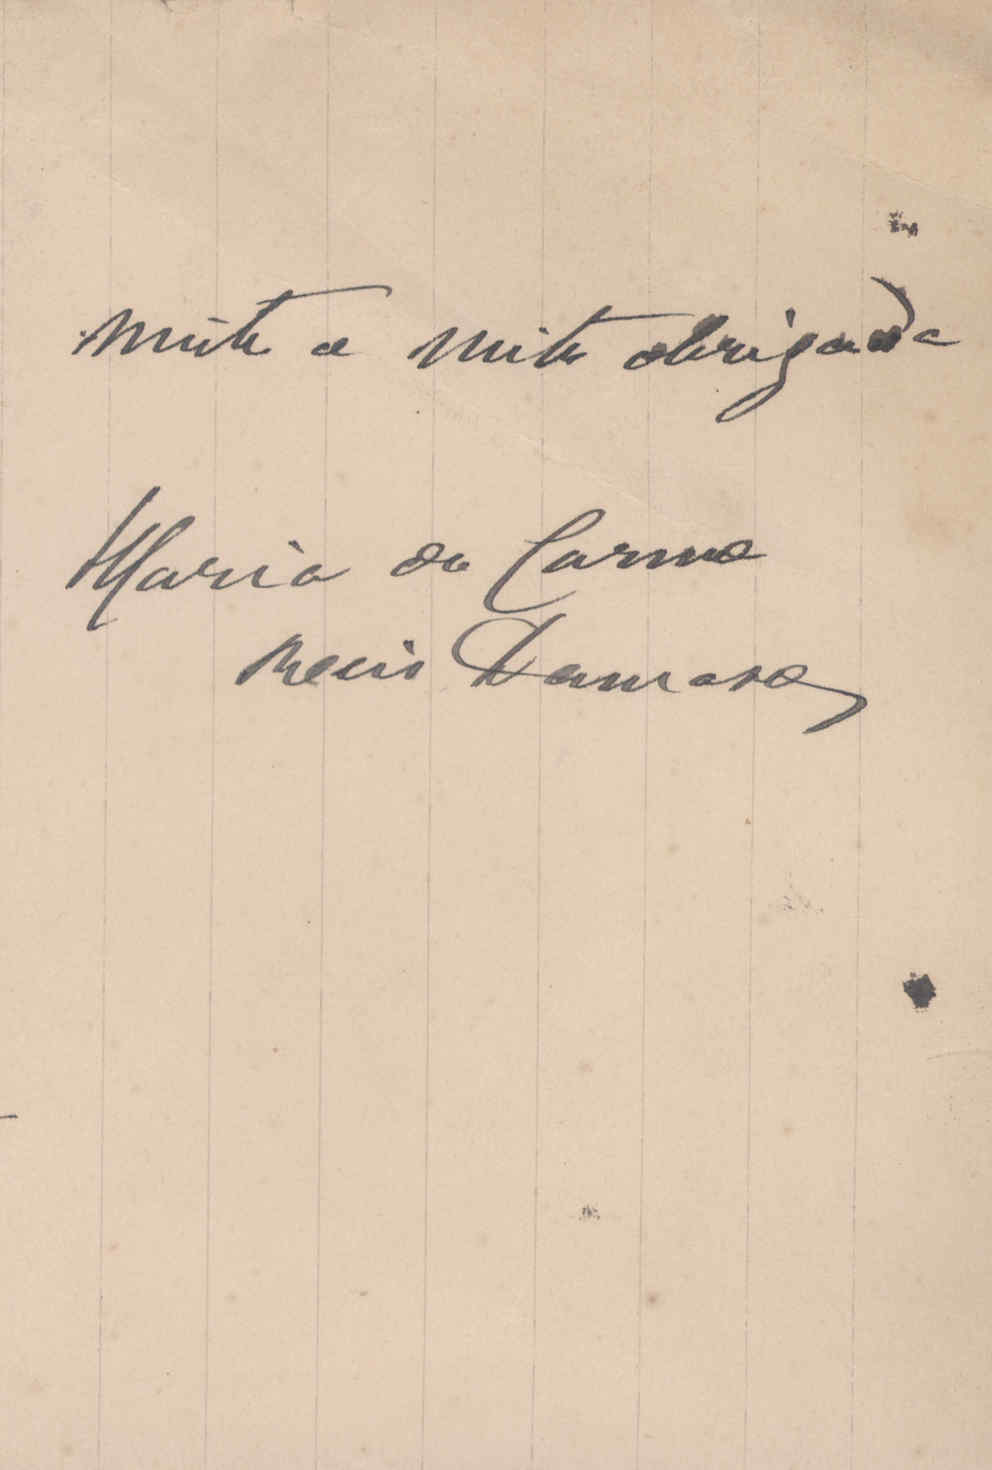 Muito e Muito obrigada
Maria do Carmo
Damaso